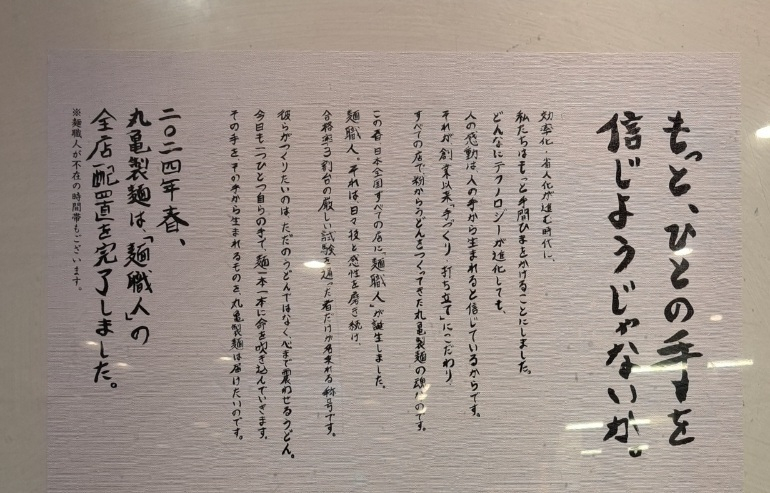 もっと、ひとの手を
信じようじゃないか。
効率化、省人化が進む時代に、
私たちはもっと手間ひまをかけることにしました。
どんなにテクノロジーが進化しても、
人の感動は人の手から生まれると信じているからです。
それが創業以来、「手づくり、打ち立て」にこだわり
すべての店で粉からうどんをつくってきた丸亀製麺の魂なのです。
この春、日本全国すべての店に「麺職人」が誕生しました。
麺職人。それは日々技と感性を磨き続け
合格率3割台の厳しい試験を通った者だけが名乗れる称号です。
彼らがつくりたいのは、ただのうどんではなく、心まで震わせるうどん。
今日も一つひとつ自らの手で、麺一本一本に命を吹き込んでいきます。
その手を、その手から生まれるものを、丸亀製麺は届けたいのです。
二〇二四年春、
丸亀製麺は、「麺職人」の
全店配置を完了しました。
※麺職人が不在の時間帯もございます。